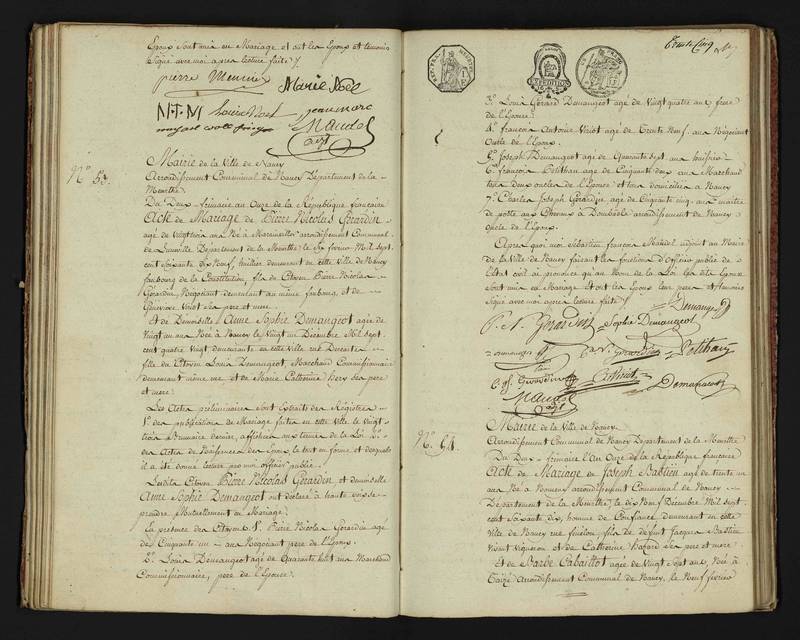 Epoux sont unis en Mariage et ont les Epoux et temoins
Signé avec moi après lecture faite
pierre Meunier Marie Noël
N.F.N. Louis Noël jean marc
Mandel
adjt
N.º 53.
Mairie de la Ville de Nancy
Arrondissement Communal de Nancy Département de la
Meurthe.
Du Deux frimaire an Onze de la République française
Acte de Mariage de Pierre Nicolas Gerardin
agé de vingt trois ans Né à arrondissement Communal
de Luneville Département de la Meurthe le Six fevrier Mil sept
cent soixante dix Neuf, demeurant en cette Ville de Nancy
faubourg de la Constitution, fils de Citoyen Pierre Nicolas
Gerardin, Negociant demeurant au même faubourg, et de
Genevieve Viriot ses pere et mere.
Et de Demoiselle Anne Sophie Demangeot agée de
Vingt un ans Née à Nancy le Vingt un Décembre Mil sept
cent quatre Vingt, demeurante en cette Ville rue
fille de Citoyen Louis Demangeot, Marchand Commissionnaire
demeurant même rue et de Marie Catherine ses pere
et mere.
Les Actes préliminaires sont Extraits des Régistres
1.º des publications de Mariage faites en cette Ville le Vingt
trois Brumaire dernier, affichées aux termes de la Loi 2.º
des Actes de Naissances des Epoux, le tout en forme et desquels
il a été donné lecture par moi officier public.
Lesdits Citoyen Pierre Nicolas Gerardin et demoiselle
Anne Sophie Demangeot ont déclaré à haute voix se
prendre Mutuellement en Mariage.
En présence des Citoyens 1.º Pierre Nicolas Gerardin agé
de Cinquante un ans Negociant pere de l'Epoux.
2.º Louis Demangeot agé de Quarante huit ans Marchand
Commissionnaire, pere de l'Epouse.
Trente Cinq
EXPÉDITION
3.º Louis Gerard Demangeot agé de Vingt quatre ans frere
de l'Epouse.
4.º françois Antoine Viriot agé de Trente Neuf ans Negociant
Oncle de l'Epoux.
5.º Joseph Demangeot agé de Quarante sept ans
6.º françois Potthain agé de Cinquante deux ans Marchand
tous deux oncles de l'Epouse et tous domiciliés à Nancy
7.º Charles Joseph Gerardin agé de Cinquante Cinq ans maitre
de poste aux Chevaux à Dombasle arrondissement de Nancy
oncle de l'Epoux.
Après quoi moi Sébastien françois Mandel adjoint au Maire
de la Ville de Nancy faisant les fonctions d'Officier public de
l'Etat civil ai prononcé qu'au Nom de la Loi les dits Epoux
sont unis en Mariage et ont les Epoux leurs peres et temoins
Signé avec moi après lecture faite. Demangeot
P. N. Gerardin Sophie Demangeot
Demangeot P. N. Gerardin Potthain
C. J. Gerardin Viriot Demangeot
Mandel
adjt
N.º 54.
Mairie de la Ville de Nancy.
Arrondissement Communal de Nancy Département de la Meurthe
Du Deux frimaire l'An Onze de la République française
Acte de Mariage de Joseph Bastien agé de trente un
ans Né à arrondissement Communal de Nancy
Département de la Meurthe, le dix Neuf Décembre Mil sept
cent soixante dix, homme de Confiance, demeurant en cette
Ville de Nancy rue fils de défunt Jacques Bastien
Vivant Vigneron et de Catherine ses pere et mere
Et de Barbe Cabaillot agée de Vingt Sept ans, Née à
Arrondissement Communal de Nancy, le Neuf fevrier